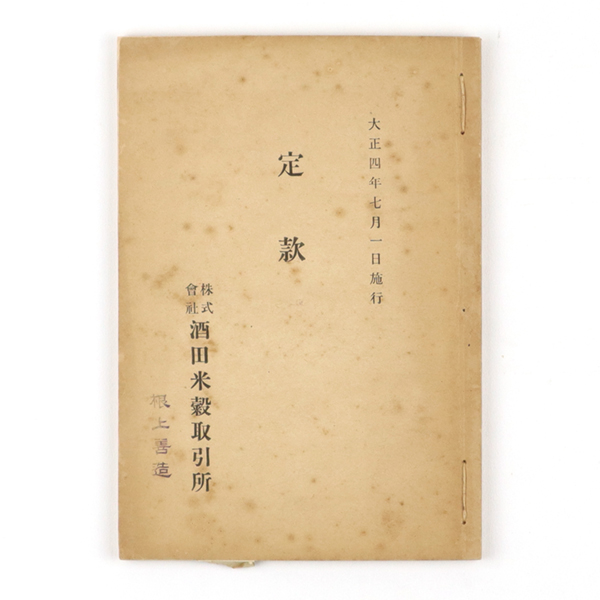 大正四年七月一日施行
定款
株式會社酒田米穀取引所
根上善造